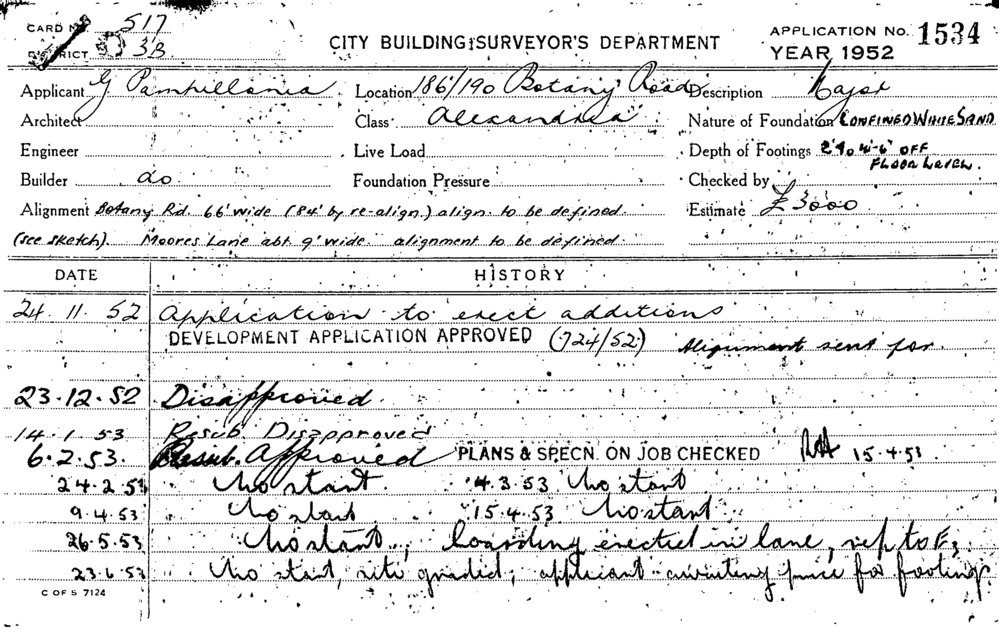 CARD No. 517
DISTRICT 3B
CITY BUILDING SURVEYOR'S DEPARTMENT
APPLICATION No. 1534
YEAR 1952
Applicant G Pamphillonia Location 186/190 Botany Road Description Major
Architect Class Alexandria Nature of Foundation CONFINED WHITE SAND
Engineer Live Load Depth of Footings 2'9 to 4'-6" OFF FLOOR LEVEL.
Builder do Foundation Pressure Checked by
Alignment Botany Rd. 66' wide (84' by re-align.) align. to be defined. Estimate £3000
(see sketch). Moores Lane abt 9' wide. alignment to be defined.
DATE HISTORY
24. 11. 52 Application to erect additions
DEVELOPMENT APPLICATION APPROVED (724/52) Alignment sent for.
23.12.52 Disapproved.
14.1.53 Resub. Disapproved
6.2.53. Resub. Approved PLANS & SPECN. ON JOB CHECKED RH 15.4.53.
24.2.53 No start 4.3.53 No start
9.4.53 No start 15.4.53 No start
26.5.53 No start, hoarding erected in lane, rep to
23.6.53 No start, site graded; applicant awaiting price for footings.
C OF S 7124